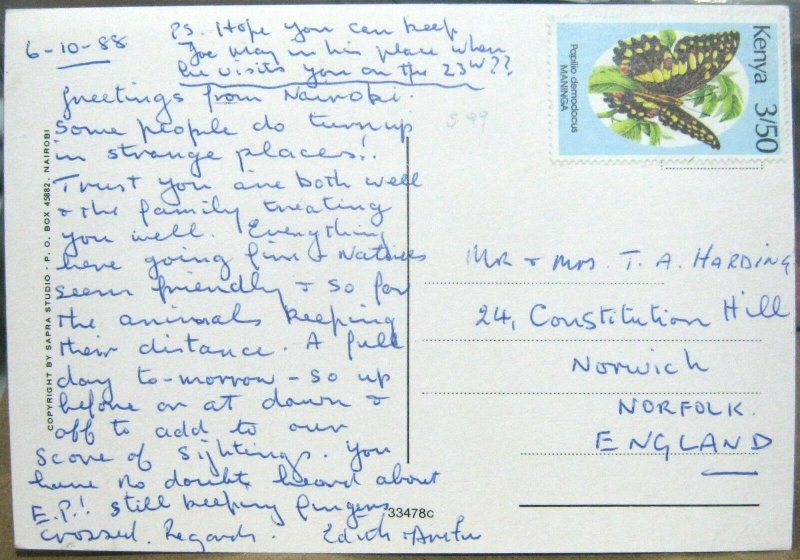 6-10-88
Ps. Hope you can keep
Joe May in his place when
he visits you on the 23rd??
Greetings from Nairobi.
Some people do turn up
in strange places!!
Trust you are both well
& the family treating
you well. Everything
here going fine & Natives
seem friendly & so far
the animals keeping
their distance. A full
day to-morrow - so up
before or at dawn &
off to add to our
score of sightings. You
have no doubt heard about
E.P.! still keeping fingers
crossed. Regards. Edith &
S 99
COPYRIGHT BY SAPRA STUDIO · P. O. BOX 45882, NAIROBI
33478c
Kenya 3/50
Papilio demodocus
MANINGA
Mr & Mrs. T. A. HARDING
24, Constitution Hill
Norwich
NORFOLK.
ENGLAND